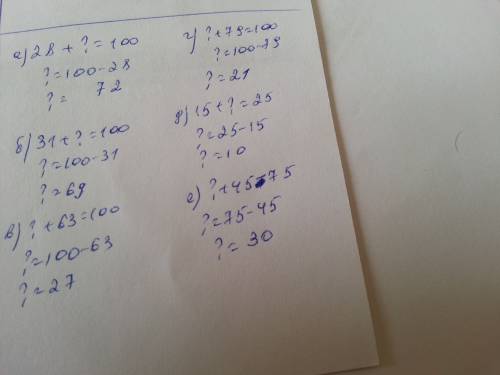 а) 28 + ? = 100
? = 100 - 28
? = 72
б) 31 + ? = 100
? = 100 - 31
? = 69
в) ? + 63 = 100
? = 100 - 63
? = 27
г) ? + 79 = 100
? = 100 - 79
? = 21
д) 15 + ? = 25
? = 25 - 15
? = 10
е) ? + 45 = 75
? = 75 - 45
? = 30